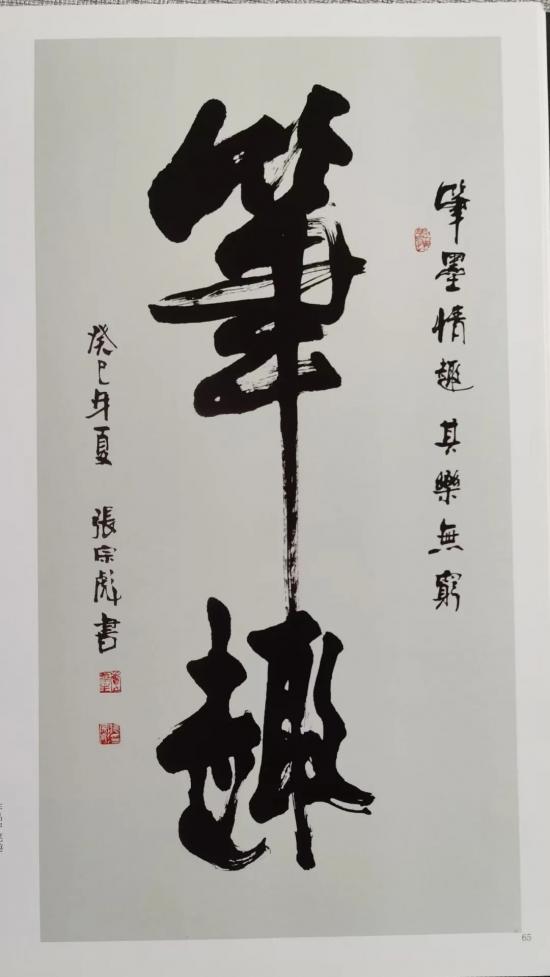 筆墨情趣 其樂無窮
筆趣
癸巳年夏 張宗彪書
65